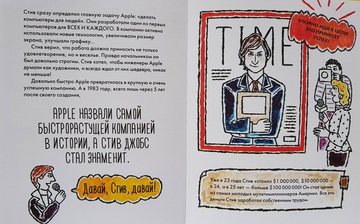 Стив сразу определил главную задачу Apple: сделать
компьютеры для людей! Они разработали один из первых
компьютеров для ВСЕХ И КАЖДОГО. В компании активно
использовали новые технологии, увеличивали размер
экрана, улучшали графику...
Стив верил, что работа должна приносить не только
удовлетворение, но и веселье. Правда начальником он
был довольно строгим. Стив хотел, чтобы инженеры Apple
думали как художники, и всегда ждал от них шедевра, никак
не меньше!
Довольно быстро Apple превратилась в крупную и очень
успешную компанию. А в 1983 году, всего лишь через 5 лет
после своего создания...
APPLE НАЗВАЛИ САМОЙ
БЫСТРОРАСТУЩЕЙ КОМПАНИЕЙ
В ИСТОРИИ, А СТИВ ДЖОБС
СТАЛ ЗНАМЕНИТ.
Давай, Стив, давай!
TIME
УПОРНО ИДИ К ЦЕЛИ,
ЭТО ПРИНЕСЁТ
УСПЕХ!
Уже в 23 года Стив «стоил» $1 000 000, $10 000 000 —
в 24, а в 25 лет — больше $100 000 000! Он стал одним
из самых молодых мультимиллионеров Америки. Все эти
деньги Стив заработал собственным трудом.